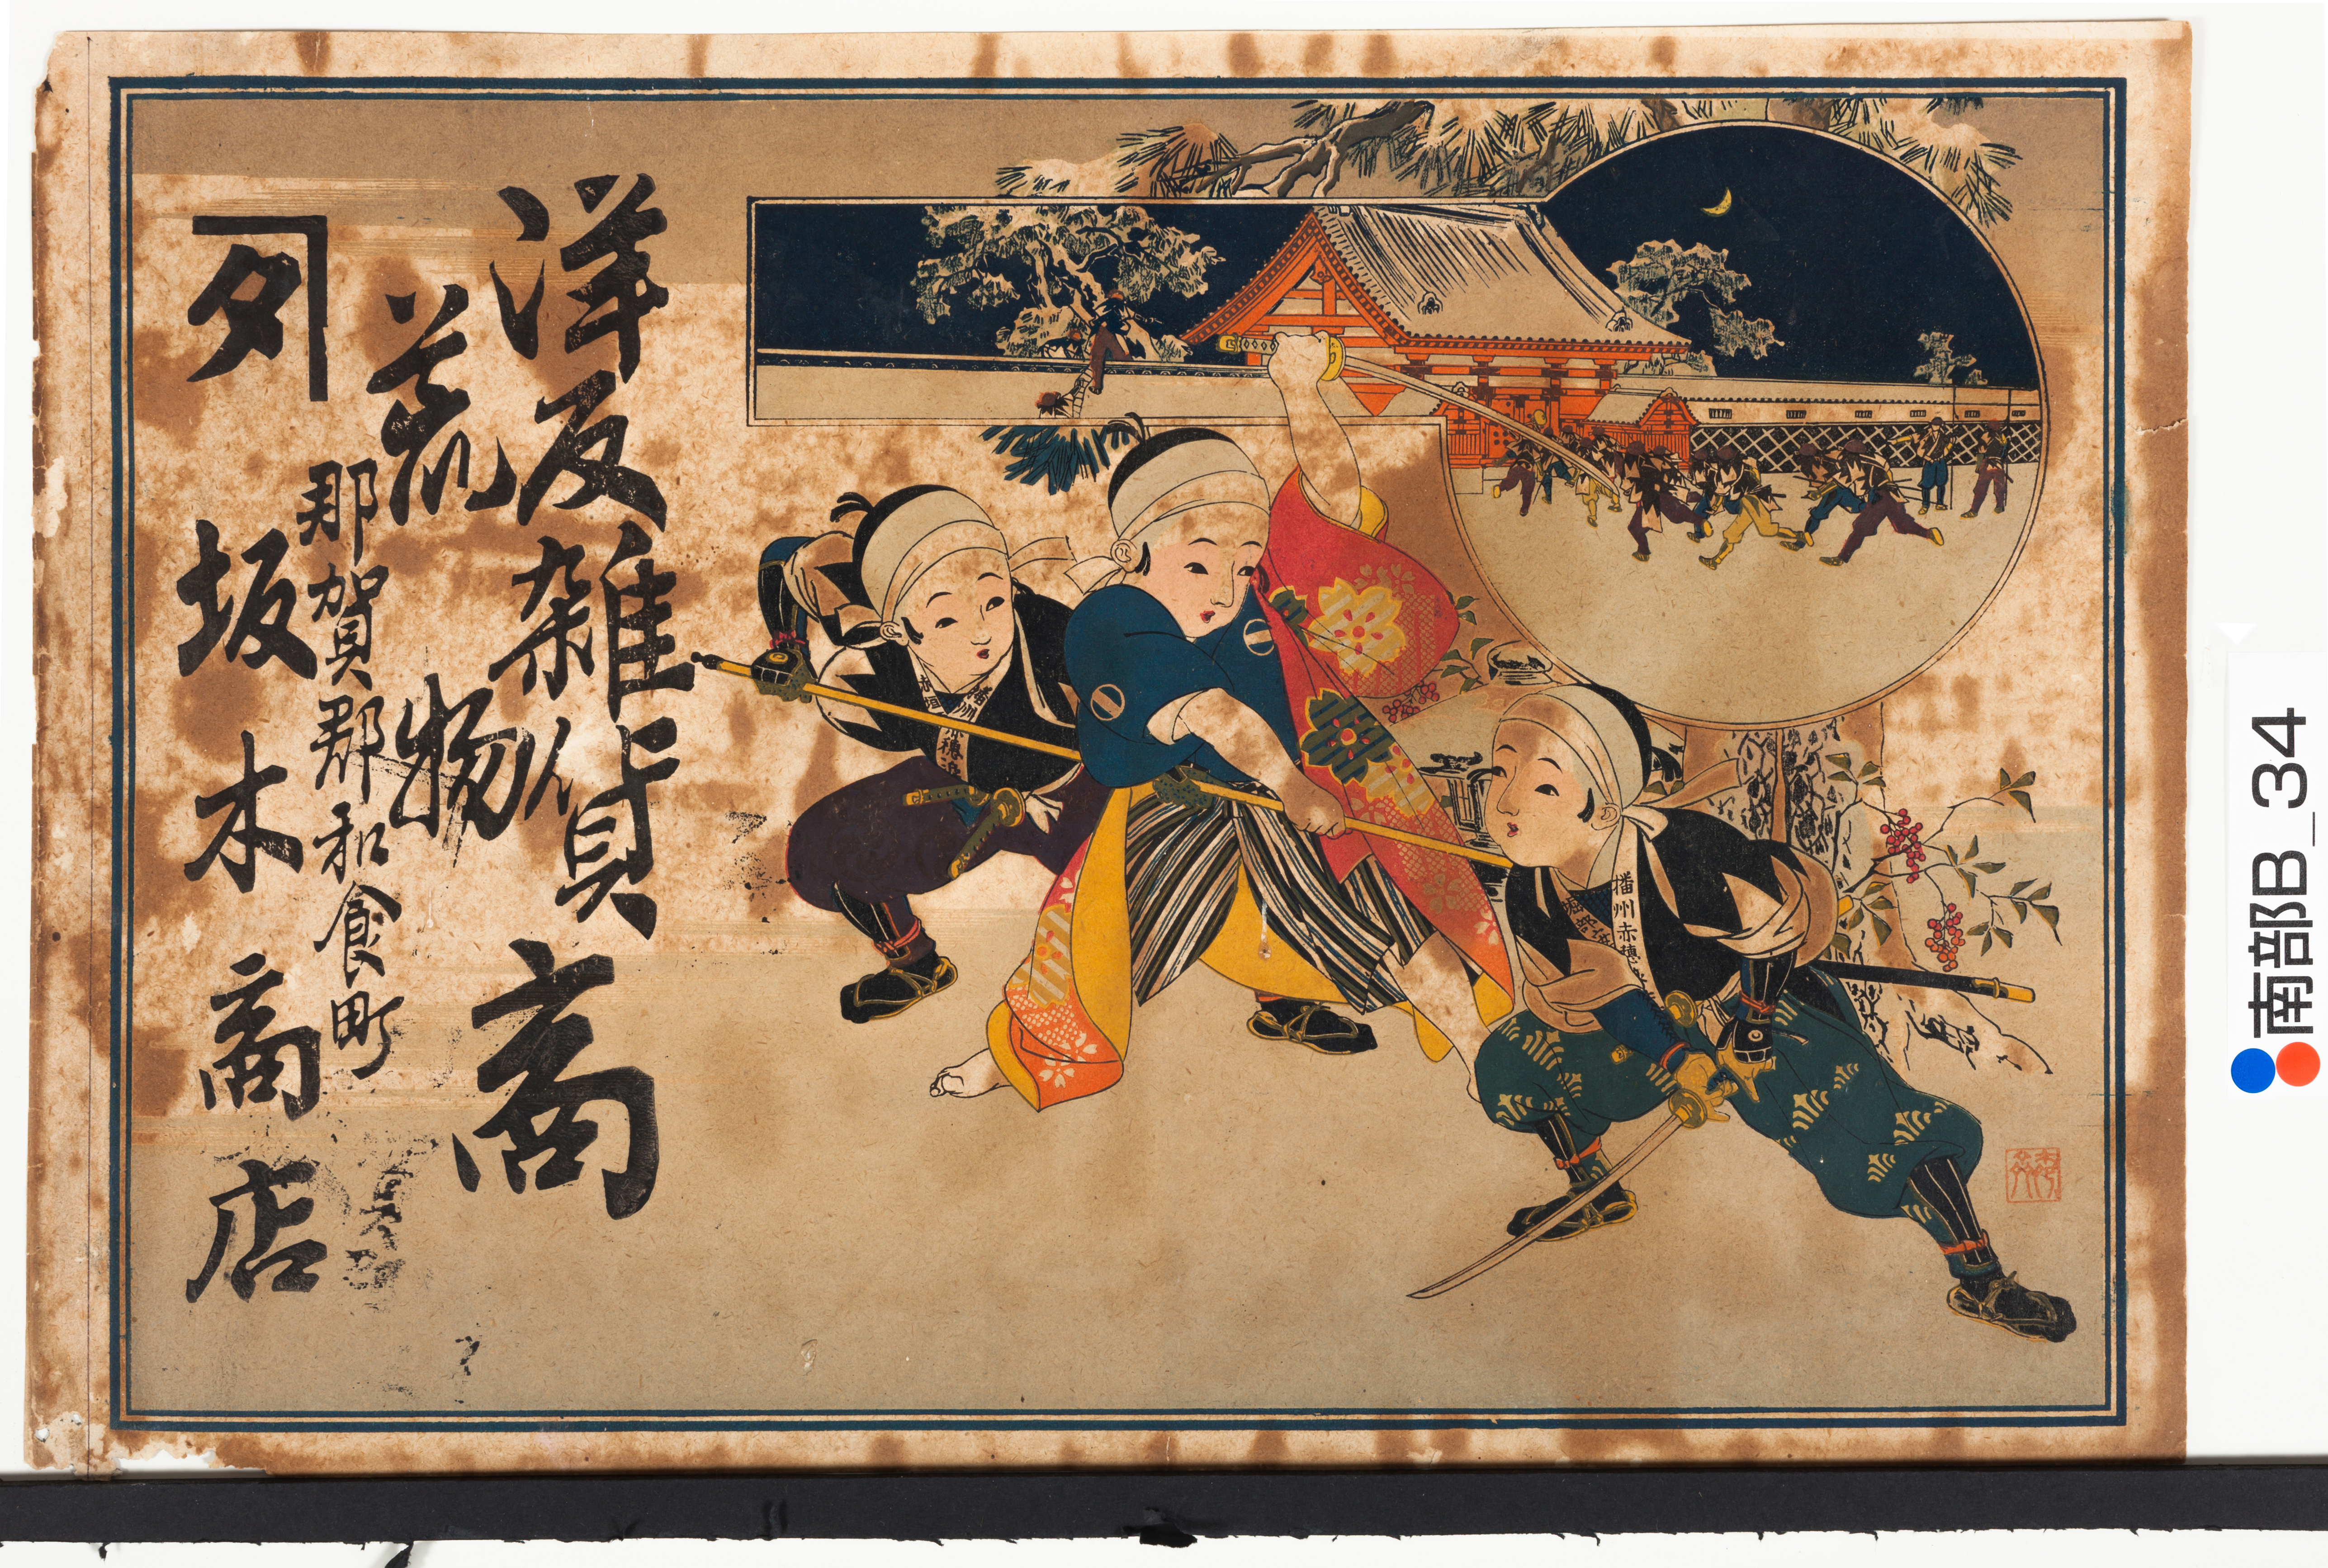 洋反雑貨商
荒物
那賀郡和食町
坂木商店
播州赤穂
南部B_34